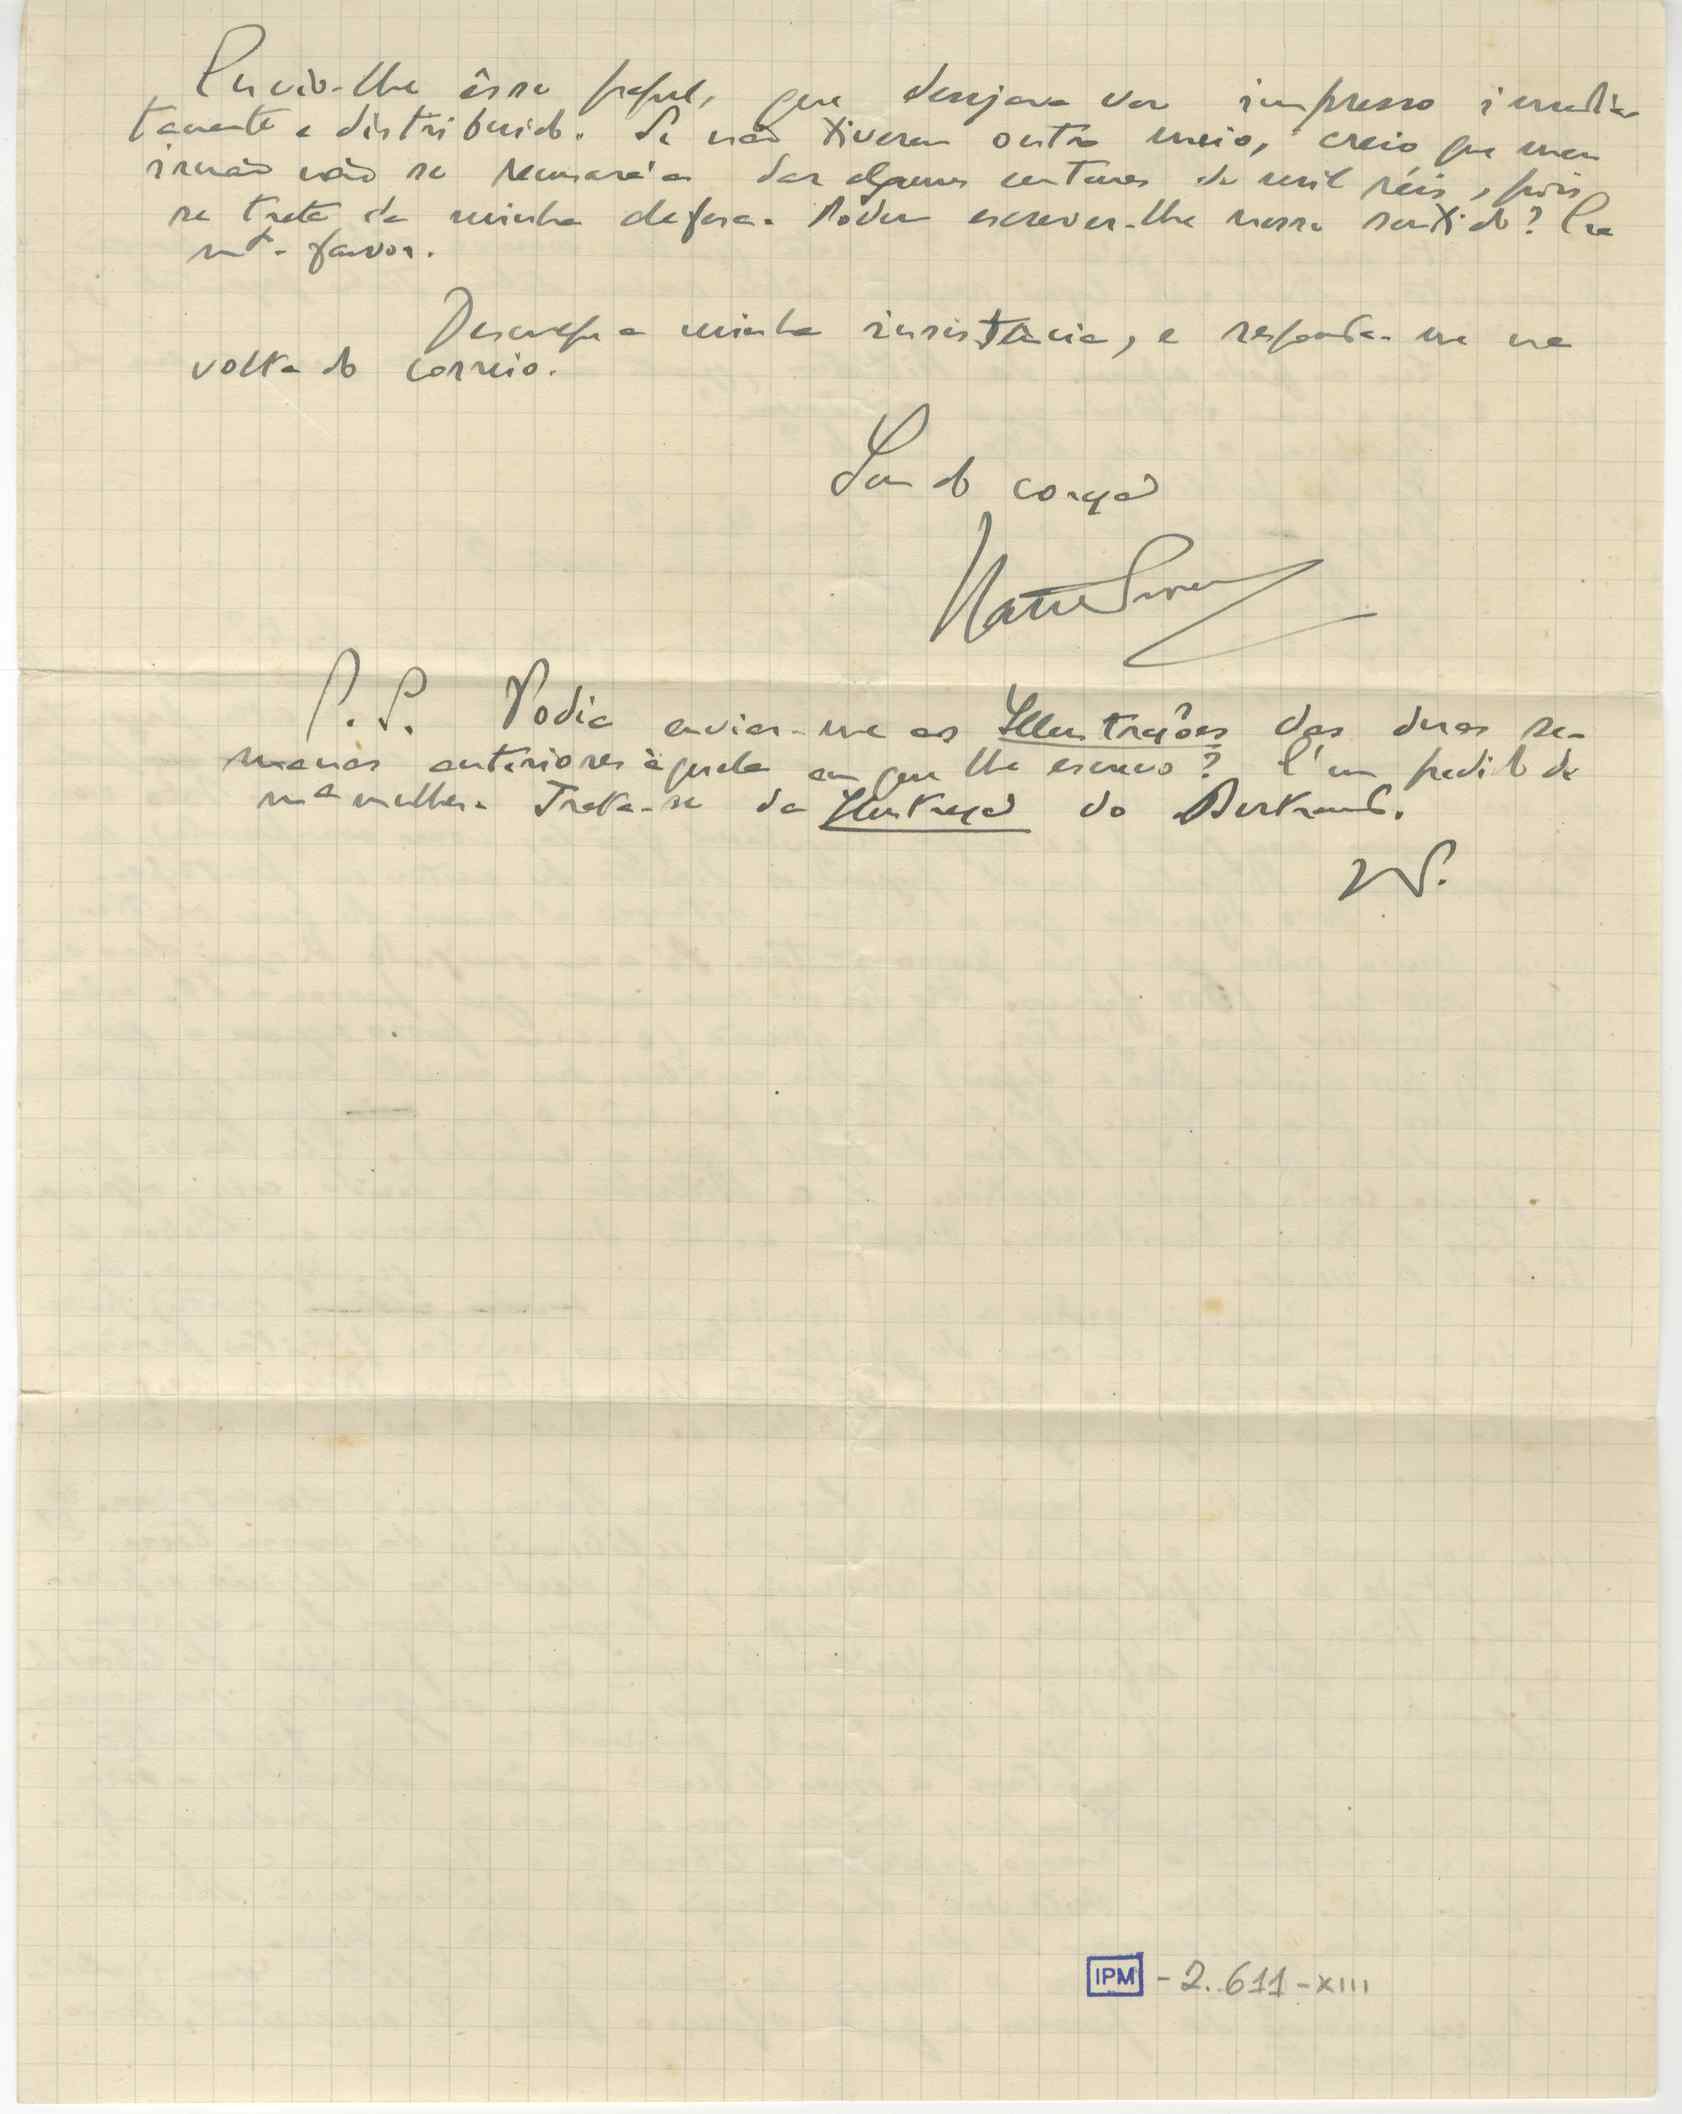 Envio-lhe êsse papel, que desejava ver impresso imedia-
tamente e distribuido. Se não tiverem outro meio, creio que meu
irmão não se recusará a dar alguns centenas de mil réis, pois
se trata da minha defesa. Podem escrever-lhe nesse sentido? Era
mt. favor.
Desculpe a minha insistência, e responda-me na
volta do correio.
Seu do coração
P.S. Podia enviar-me as Illustrações das duas se-
manas anteriores àquela em que lhe escrevo? É um pedido de
mª mulher. Trata-se da Illustração do Bertrand.
IPM - 2.611-XIII